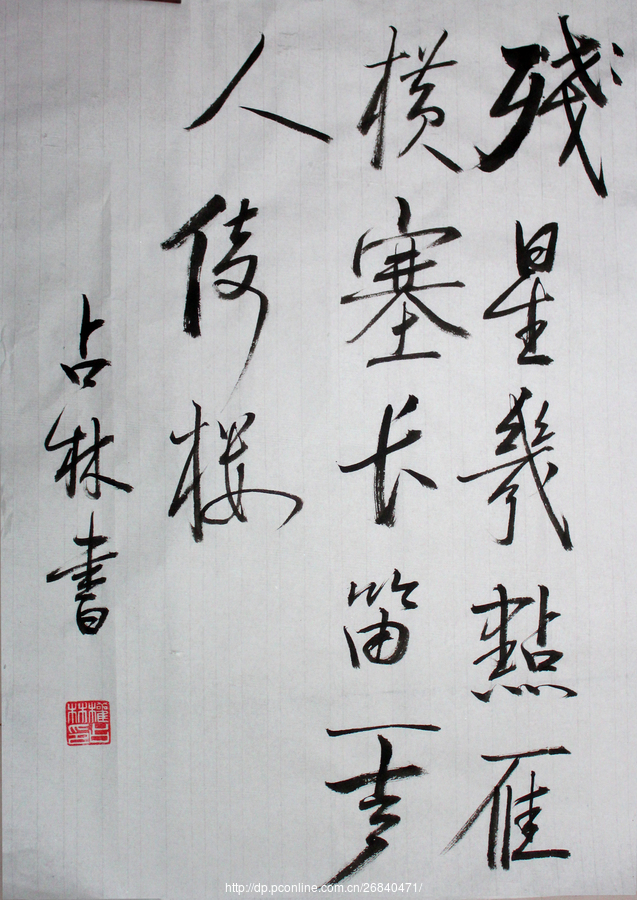 残星幾點雁
横塞长笛一声
人倚楼
占林書
權占
林印
http://dp.pconline.com.cn/26840471/